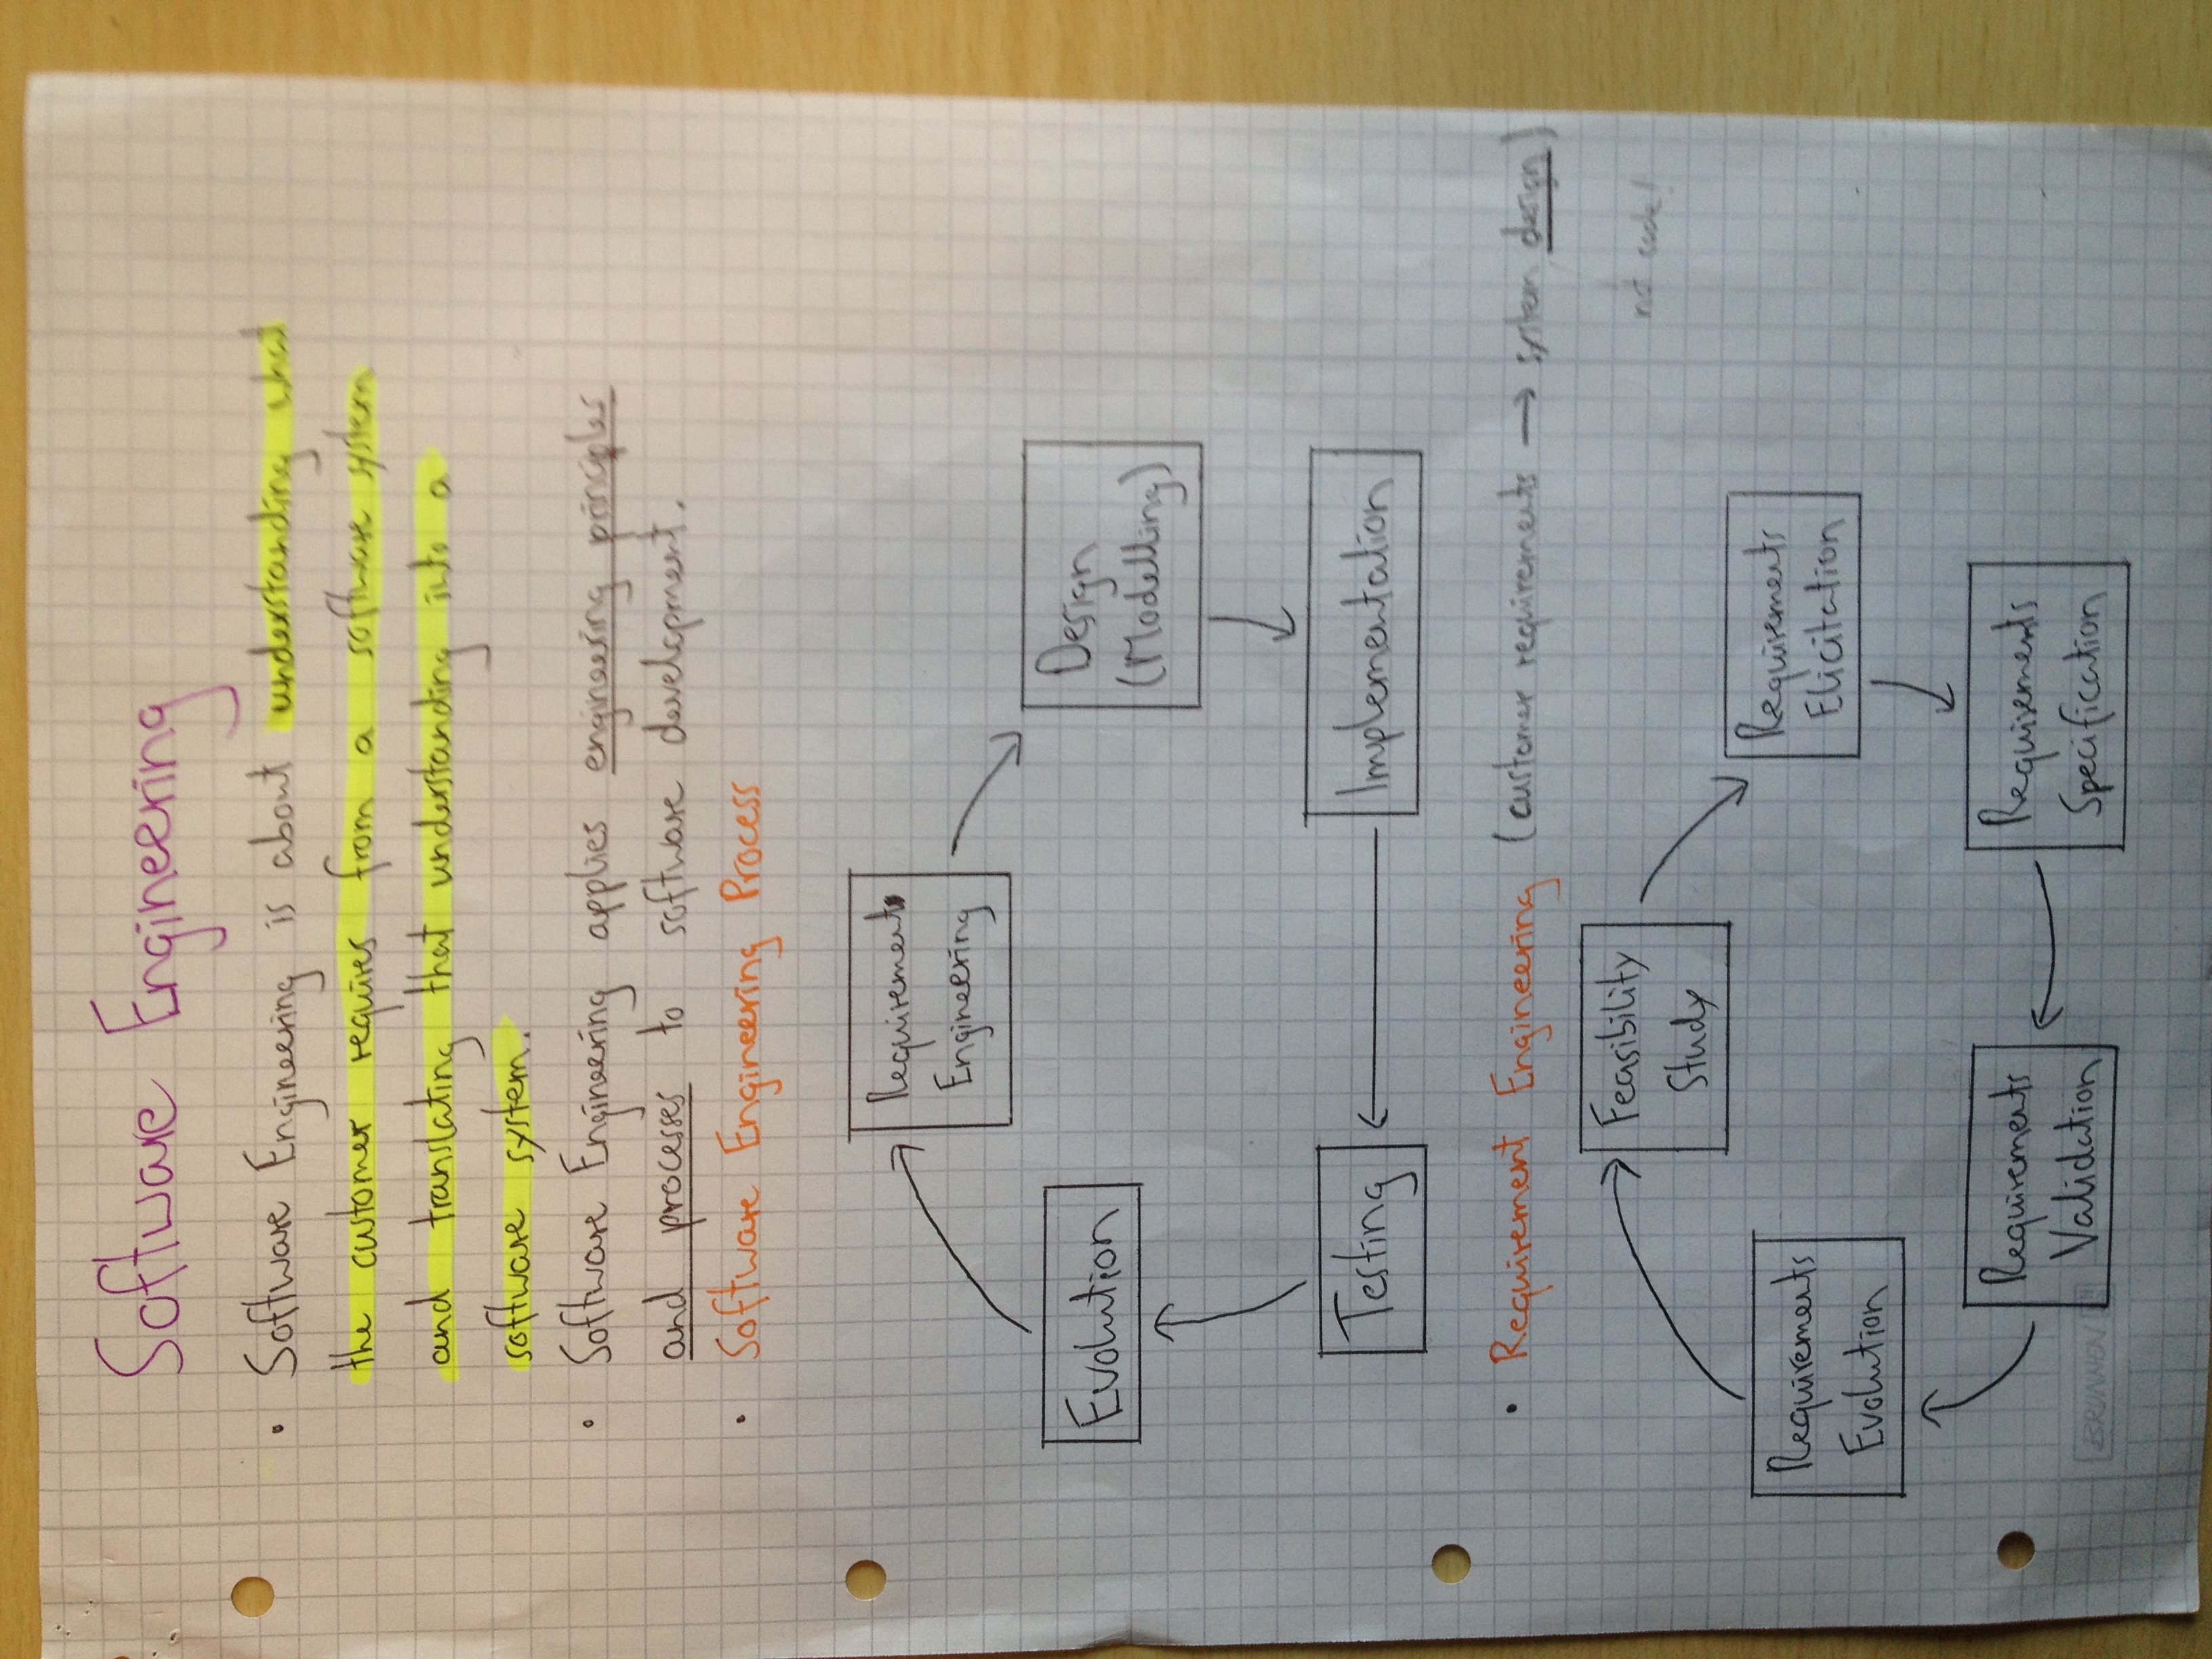 Software Engineering
• Software Engineering is about understanding what
the customer requires from a software system
and translating that understanding into a
software system.
• Software Engineering applies engineering principles
and processes to software development.
• Software Engineering Process
Requirements
Engineering
Evolution
Design
(Modelling)
Testing
Implementation
• Requirement Engineering (customer requirements → system design)
not code!
Feasibility
Study
Requirements
Elicitation
Requirements
Evolution
Requirements
Specification
Requirements
Validation
BRUNNEN